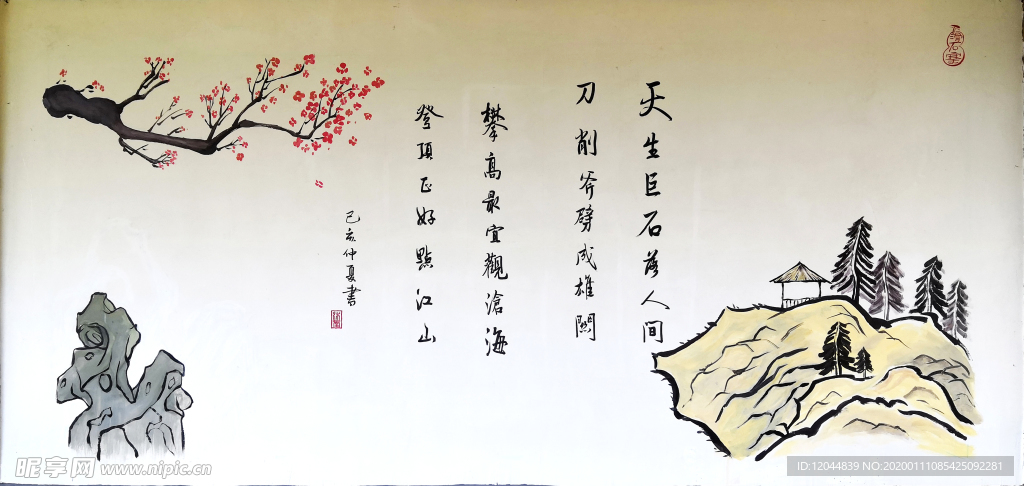 天生巨石落人间
刀削斧劈成雄關
攀高最宜觀滄海
登頂正好點江山
己亥仲夏書
昵享网 www.nipic.cn
ID:12044839 NO:20200111085425092281